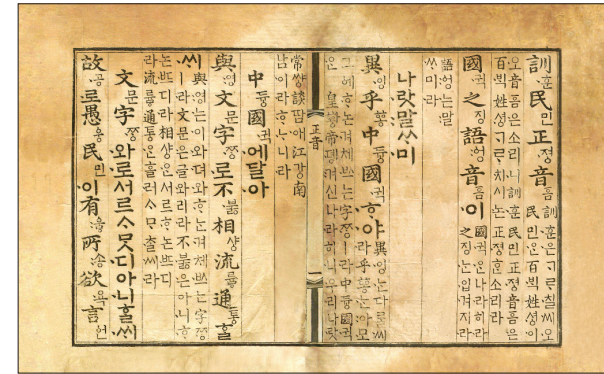 訓훈民민正져ᇰ音ᅙᅳᆷ 訓훈은ᄀᆞᄅᆞ칠씨오民민ᄋᆞᆫ百ᄇᆡᆨ姓셔ᇰ이
오音ᅙᅳᆷ은소리니訓훈民민正져ᇰ音ᅙᅳᆷ은
百ᄇᆡᆨ姓셔ᇰᄀᆞᄅᆞ치시논正져ᇰᄒᆞᆫ소리라
國귁之징語ᅌᅥᆼ音ᅙᅳᆷ이 國귁ᄋᆞᆫ나라히라之징ᄂᆞᆫ입겨지라
語ᅌᅥᆼ는말
ᄊᆞ미라
나랏말ᄊᆞ미
異잉乎ᅘᅩᆼ中듀ᇰ國귁ᄒᆞ야 異잉ᄂᆞᆫ다ᄅᆞᆯ씨라乎ᅘᅩᆼᄂᆞᆫ아모
그ᅌᅦᄒᆞ논겨체ᄡᅳ는字ᄍᆞᆼㅣ라中듀ᇰ國귁
ᄋᆞᆫ皇ᅘᅪᇰ帝뎽겨신나라히니우리나랏
正音
常쌰ᇰ談땀애江가ᇰ南
남이라ᄒᆞᄂᆞ니라
中듀ᇰ國귁에달아
與영文문字ᄍᆞᆼ로不부ᇙ相샤ᇰ流류ᇢ通토ᇰᄒᆞᆯ
씨 與영는이와뎌와ᄒᆞ는겨체ᄡᅳ는字ᄍᆞᆼ
ㅣ라文문은글와리라不부ᇙ은아니ᄒᆞ
논ᄠᅳ디라相샤ᇰᄋᆞᆫ서르ᄒᆞ논ᄠᅳ디
라流류ᇢ通토ᇰᄋᆞᆫ흘러ᄉᆞᄆᆞᄎᆞᆯ씨라
文문字ᄍᆞᆼ와로서르ᄉᆞᄆᆞᆺ디아니ᄒᆞᆯᄊᆡ
故공로愚ᅌᅮᆼ民민이有ᅌᅮᇢ所송欲욕言ᅌᅥᆫ